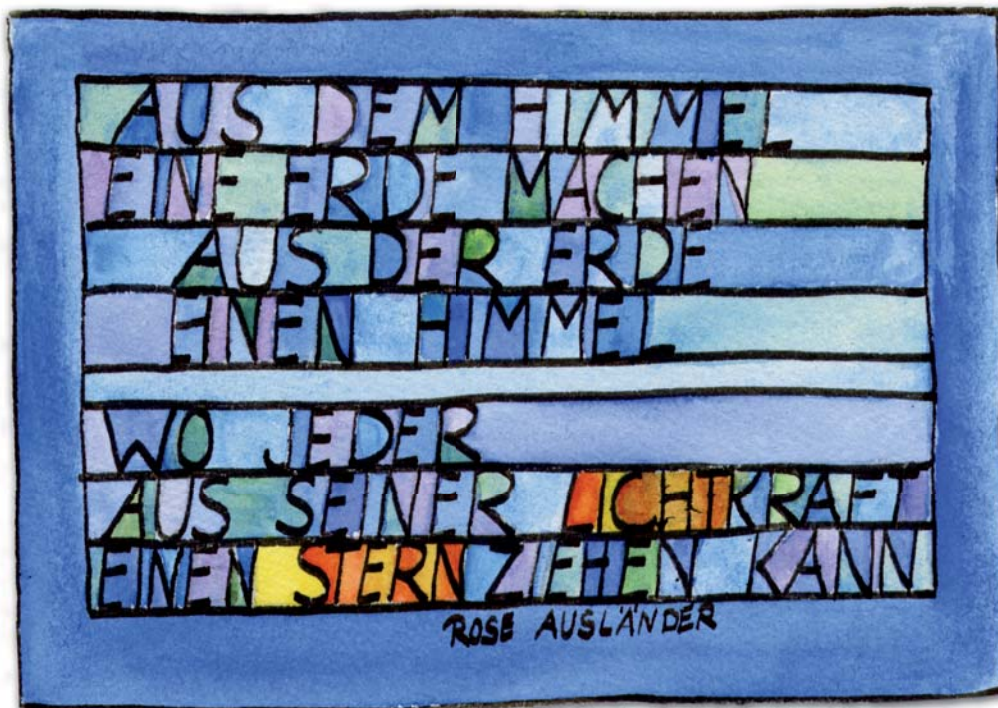 AUS DEM HIMMEL
EINE ERDE MACHEN
AUS DER ERDE
EINEN HIMMEL
WO JEDER
AUS SEINER LICHTKRAFT
EINEN STERN ZIEHEN KANN
ROSE AUSLÄNDER